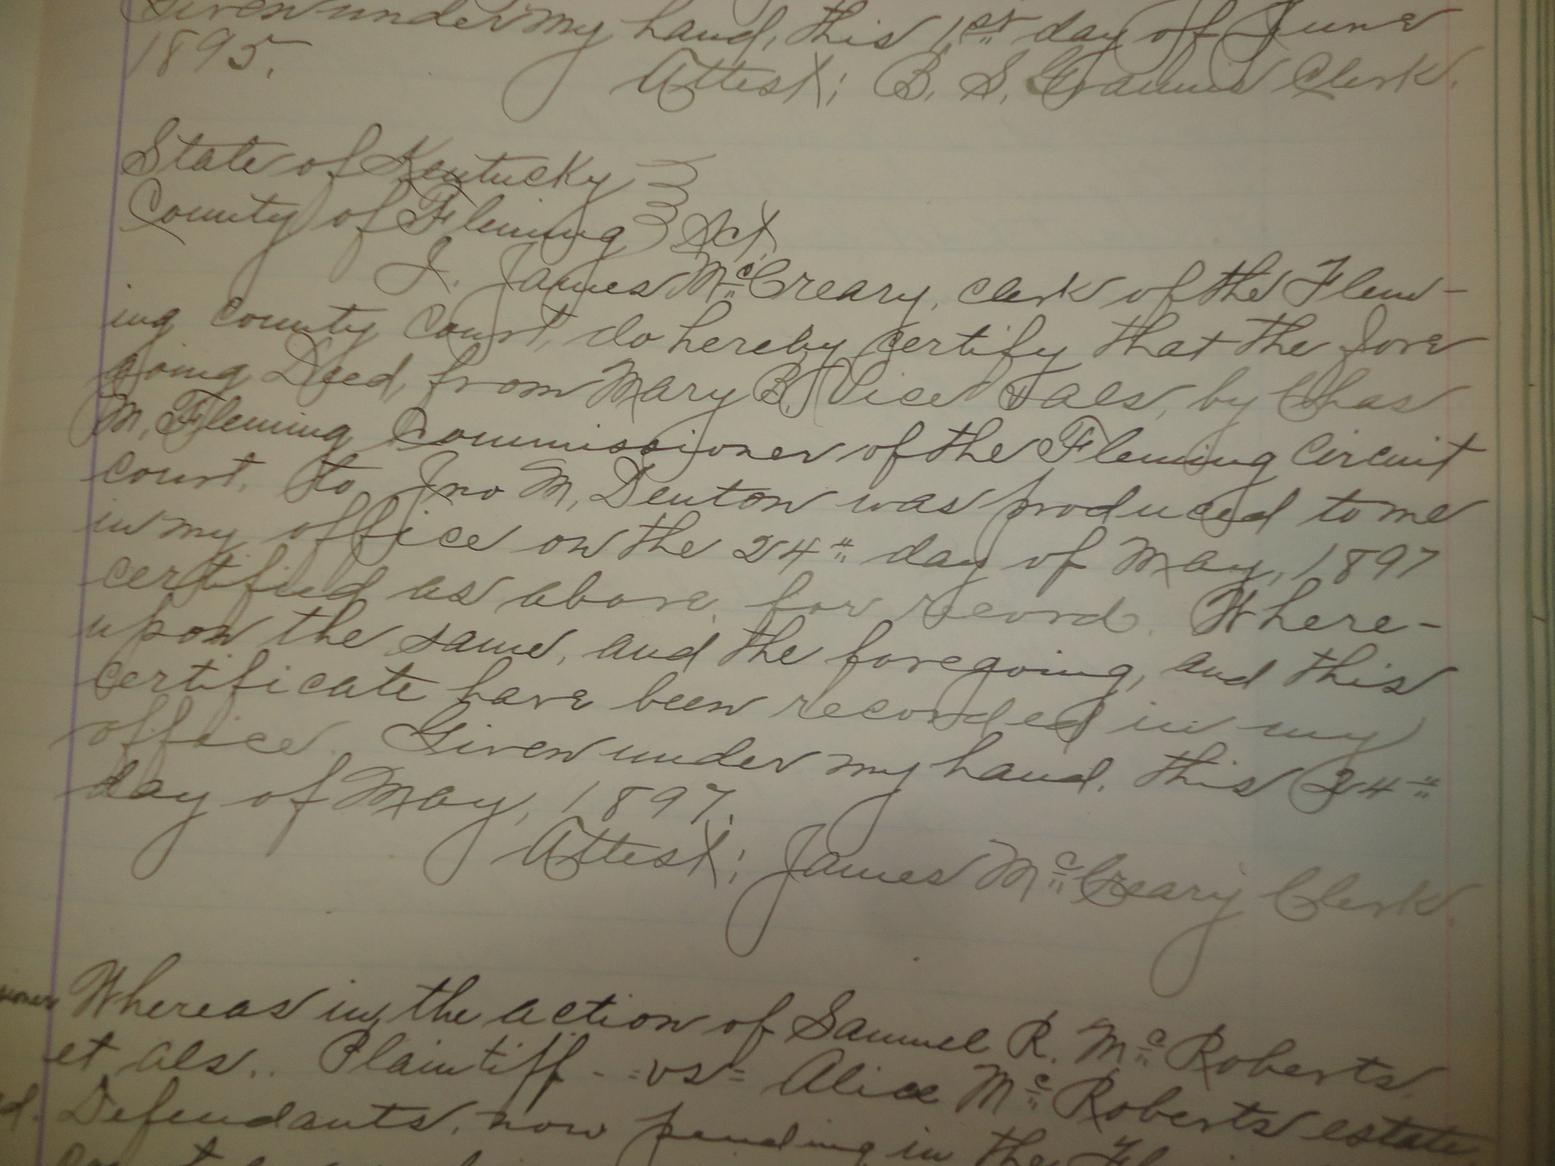 Given under my hand, this 1st day of June
1895.
Attest; B. S. Grannis Clerk.
State of Kentucky
County of Fleming Sct
I. James McCreary, clerk of the Flem-
ing County Court, do hereby certify that the fore
going Deed, from Mary B. Vice & als, by Chas
M. Fleming Commissioner of the Fleming Circuit
court, to Jno M. Denton was produced to me
in my office on the 24th day of May, 1897
certified as above for record. Where-
upon the same, and the foregoing, and this
certificate have been recorded in my
office. Given under my hand, this 24th
day of May, 1897.
Attest; James McCreary Clerk.
Whereas in the action of Samuel R. McRoberts
et als.. Plaintiff - vs = Alice McRoberts estate
Defendants, now pending in the